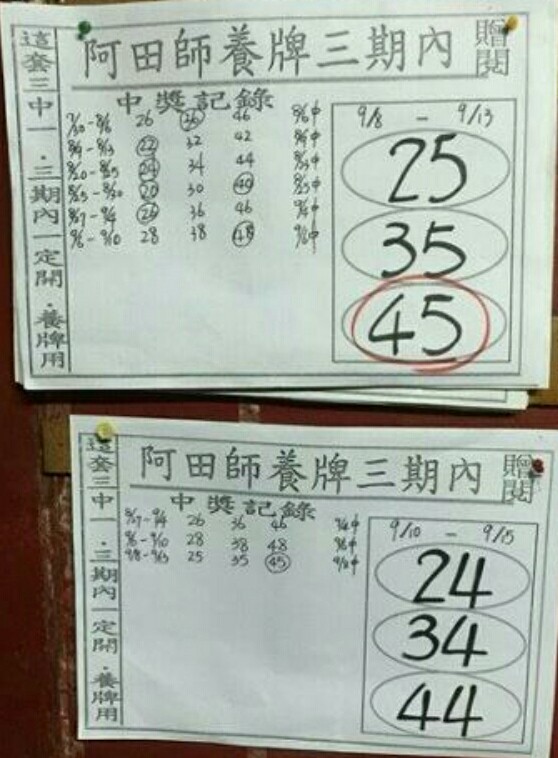 這套三中一.三期內一定開.養牌用
阿田師養牌三期內
贈閱
中獎記錄
7/30-8/6 26 36 46 8/6中
8/9-8/13 22 32 42
8/20-8/25 24 34 44
8/25-8/30 20 30 40 8/25中
8/27-9/4 26 36 46 9/4中
9/6-9/10 28 38 48
9/8 - 9/13
25
35
45
這套三中一.三期內一定開.養牌用
阿田師養牌三期內
贈閱
中獎記錄
8/27-9/4 26 36 46 9/4中
9/6-9/10 28 38 48
9/8-9/13 25 35 45
9/10 - 9/15
24
34
44